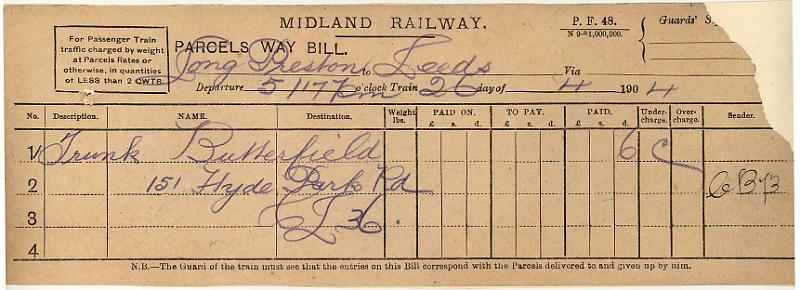 MIDLAND RAILWAY.
P. F. 48.
N 9-°1,000,000.
Guards' S
For Passenger Train
traffic charged by weight
at Parcels Rates or
otherwise, in quantities
of LESS than 2 CWTS.
PARCELS WAY BILL.
Long Preston to Leeds Via
Departure 5/17 pm o'clock Train 26 day of 4 1904
No. Description. NAME. Destination. Weight lbs. PAID ON. TO PAY. PAID. Under-charge. Over-charge. Sender.
£ s. d. £ s. d. £ s. d.
1 Trunk Butterfield 6
2 151 Hyde Park Rd
3 36.
4
N.B.—The Guard of the train must see that the entries on this Bill correspond with the Parcels delivered to and given up by him.